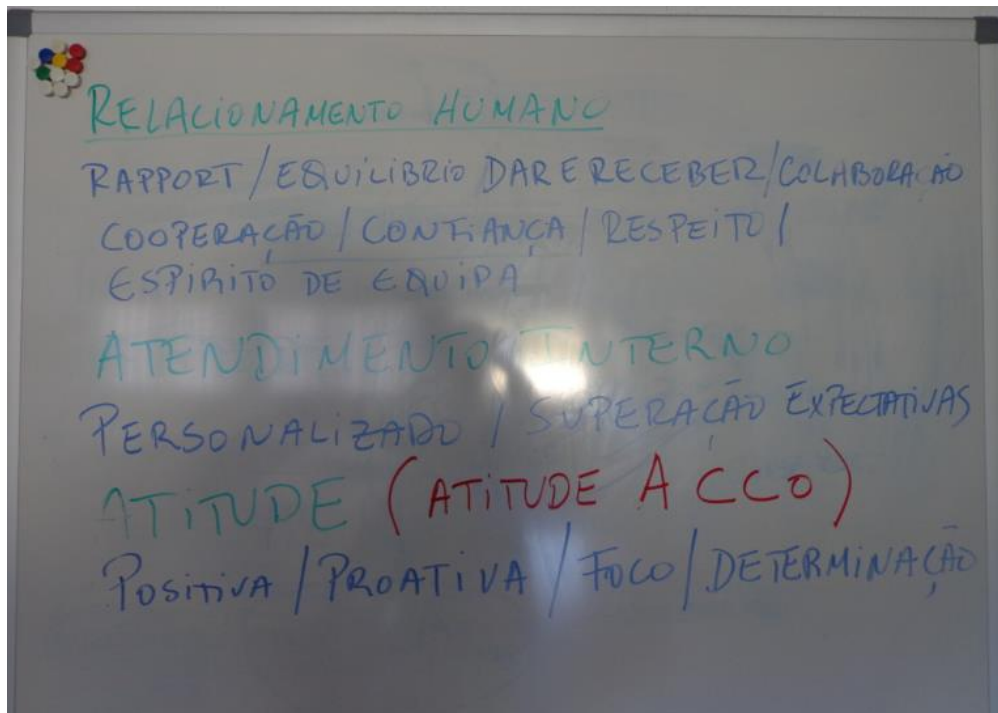 RELACIONAMENTO HUMANO
RAPPORT / EQUILIBRIO DAR E RECEBER / COLABORAÇÃO
COOPERAÇÃO / CONFIANÇA / RESPEITO /
ESPIRITO DE EQUIPA
ATENDIMENTO INTERNO
PERSONALIZADO / SUPERAÇÃO EXPECTATIVAS
ATITUDE (ATITUDE A CCO)
POSITIVA / PROATIVA / FOCO / DETERMINAÇÃO